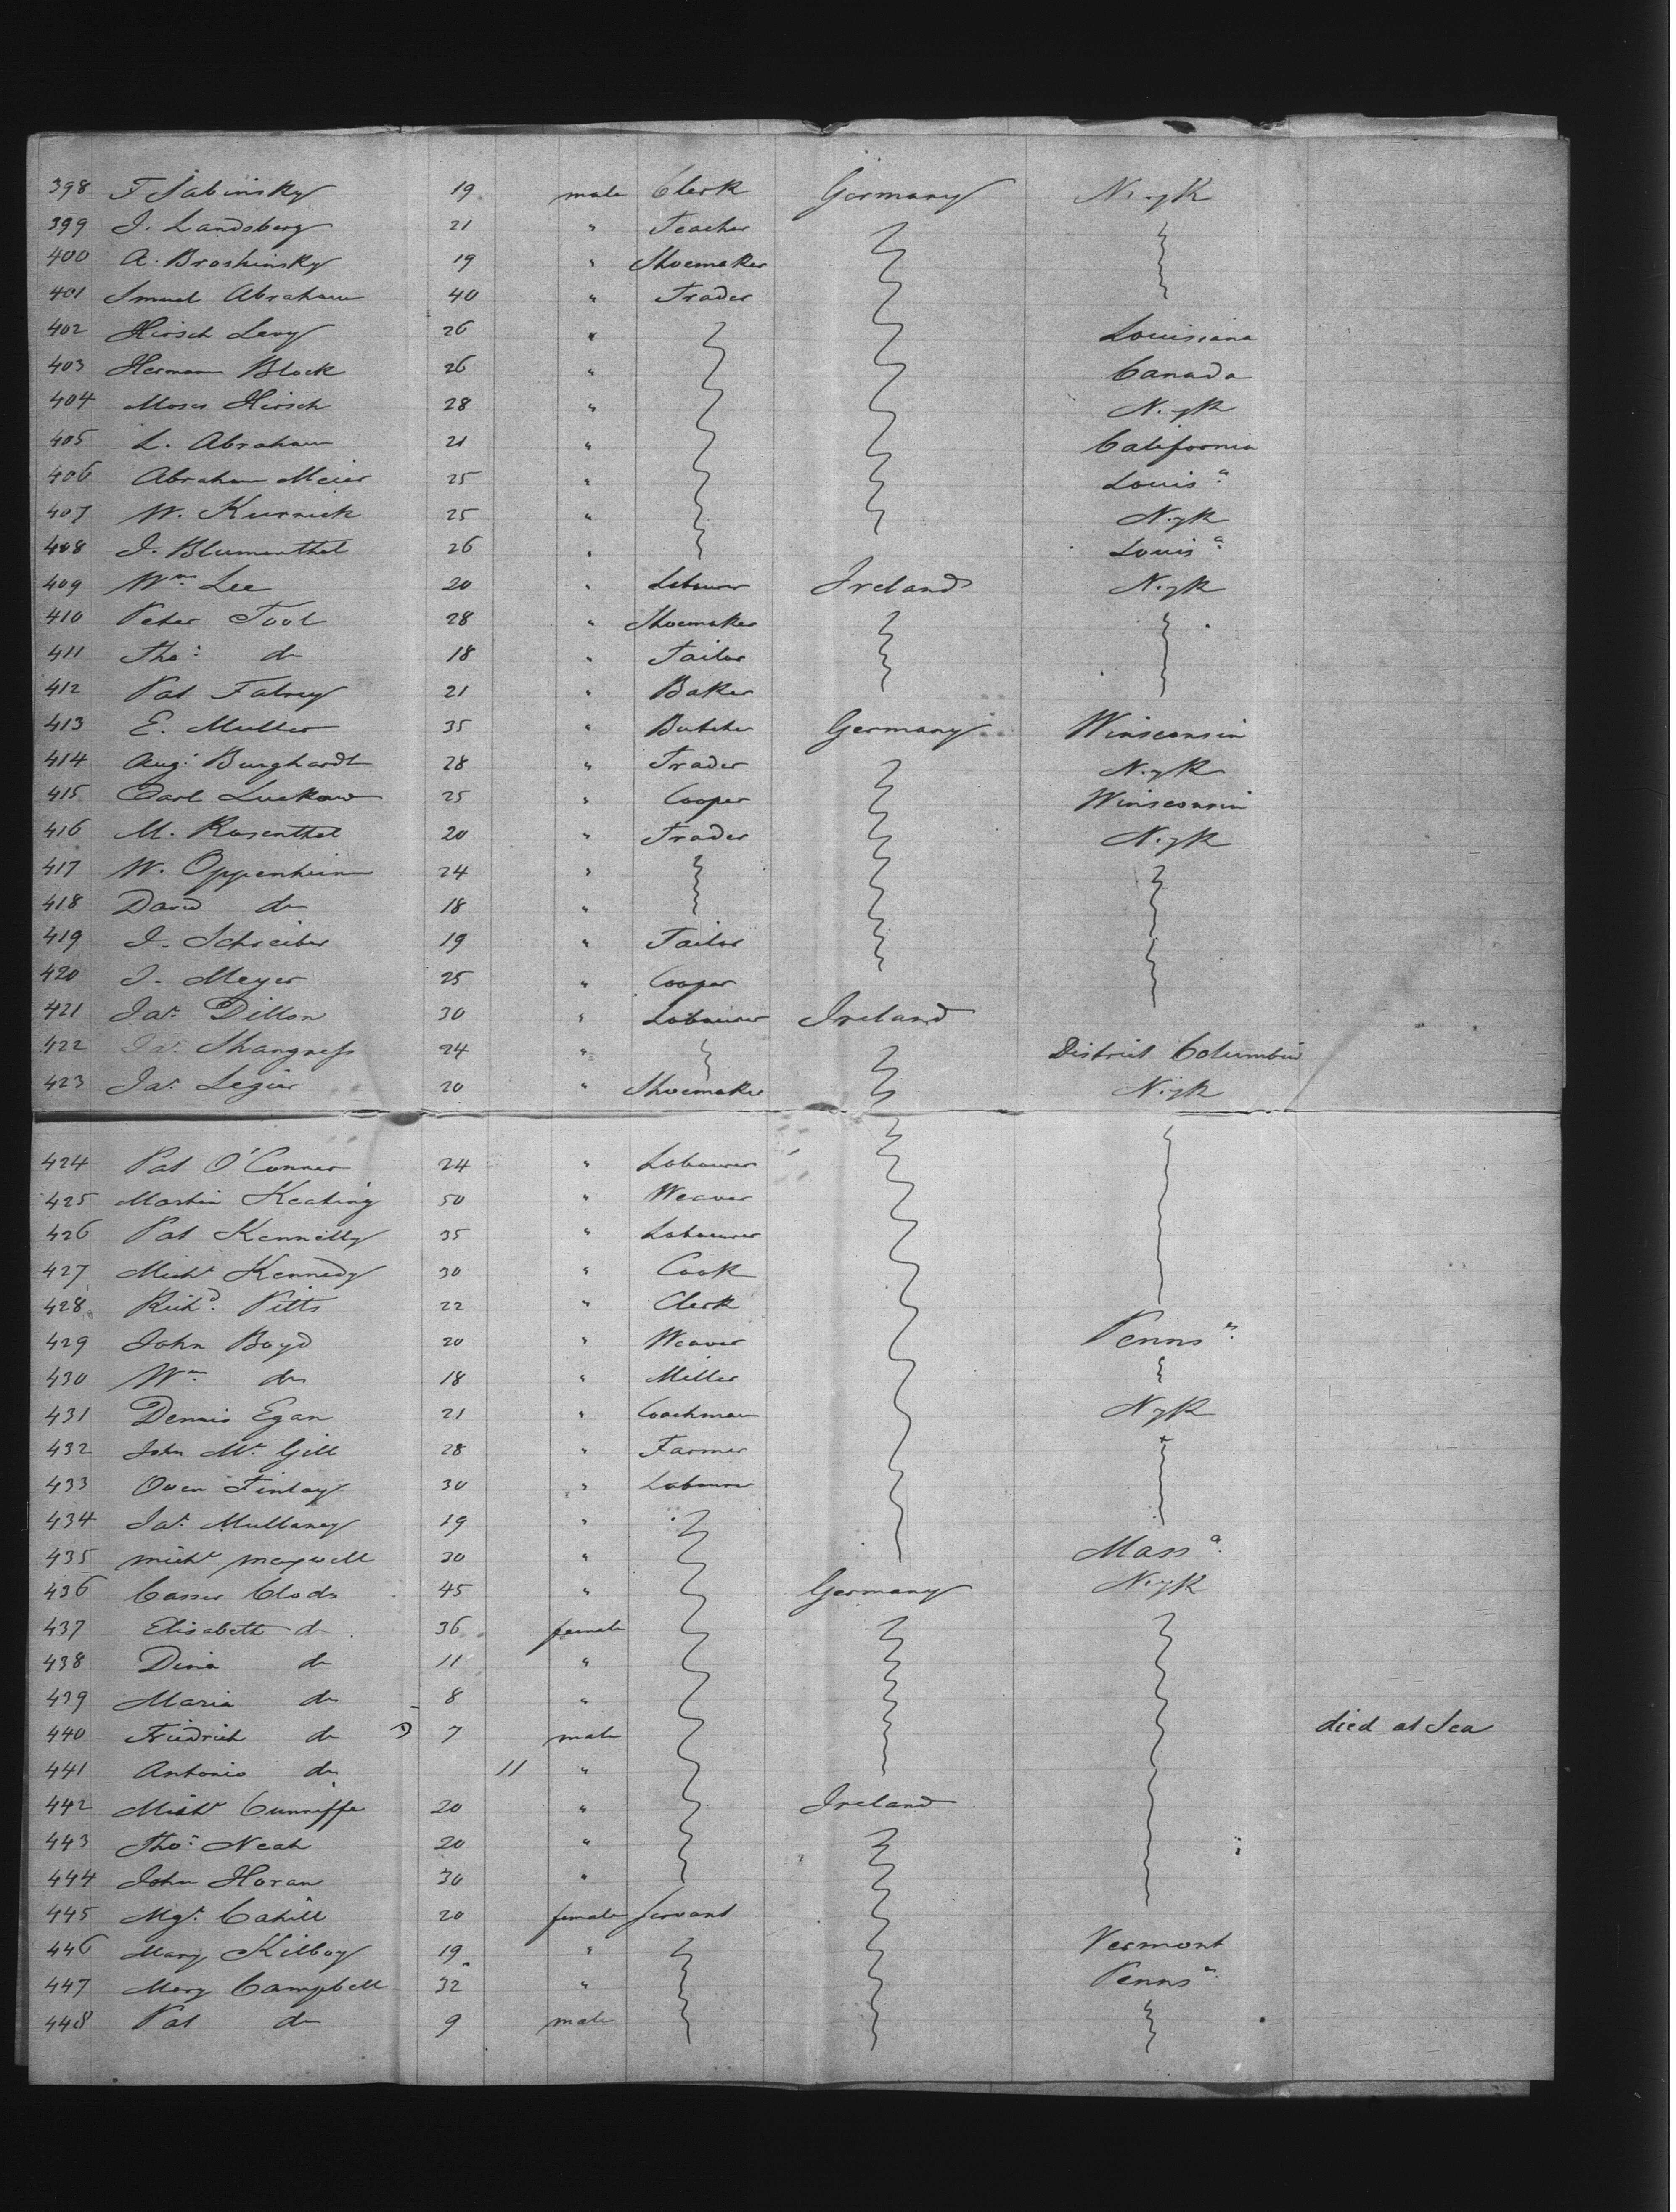 398 F Sabinsky 19 male Clerk Germany N.yk
399 I. Landsberg 21 " Teacher
400 A. Broshinsky 19 " Shoemaker
401 Smuel Abraham 40 " Trader
402 Hirsch Levy 26 " Louisiana
403 Herman Block 26 " Canada
404 Moses Hirsch 28 " N.yk
405 L. Abraham 21 " California
406 Abraham Meier 25 " Louisa.
407 W. Kurnick 25 " N.yk
408 I. Blumenthal 26 " Louisa.
409 Wm Lee 20 " Labourer Ireland N.yk
410 Peter Tool 28 " Shoemaker
411 Tho: do 18 " Tailor
412 Pat Falvey 21 " Baker
413 E. Muller 35 " Butcher Germany Winsconsin
414 Aug: Burghardt 28 " Trader N.yk
415 Carl Luckow 25 " Cooper Winsconsin
416 M. Rosenthal 20 " Trader N.yk
417 W. Oppenheim 24 "
418 David do 18 "
419 I. Schreiber 19 " Tailor
420 I. Meyer 25 " Cooper
421 Jas. Dillon 30 " Labourer Ireland
422 Jas. 24 " District Columbia
423 Jas. Legier 20 " Shoemaker N.yk
424 Pat O'Conner 24 " Labourer
425 Martin Keating 50 " Weaver
426 Pat Kennelly 35 " Labourer
427 Michl Kennedy 30 " Cook
428 Richd. Pitts 22 " Clerk
429 John Boyd 20 " Weaver Pennsa.
430 Wm do 18 " Miller
431 Dennis Egan 21 " Coachman N.yk
432 John Mc Gill 28 " Farmer
433 Owen Finlay 30 " Labourer
434 Jas. Mullaney 19 "
435 Michl Maxwell 30 " Massa.
436 Casser Clods 45 " Germany N.yk
437 Elisabeth do 36 female
438 Dina do 11 "
439 Maria do 8 "
440 Friedrich do 7 male died at Sea
441 Antonio do 11 "
442 Michl Cunniffe 20 " Ireland
443 Tho: Neah 20 "
444 John Horan 30 "
445 Mgt. Cahill 20 female servant
446 Mary Kilboy 19 " Vermont
447 Mary Campbell 32 " Pennsa.
448 Pat do 9 male